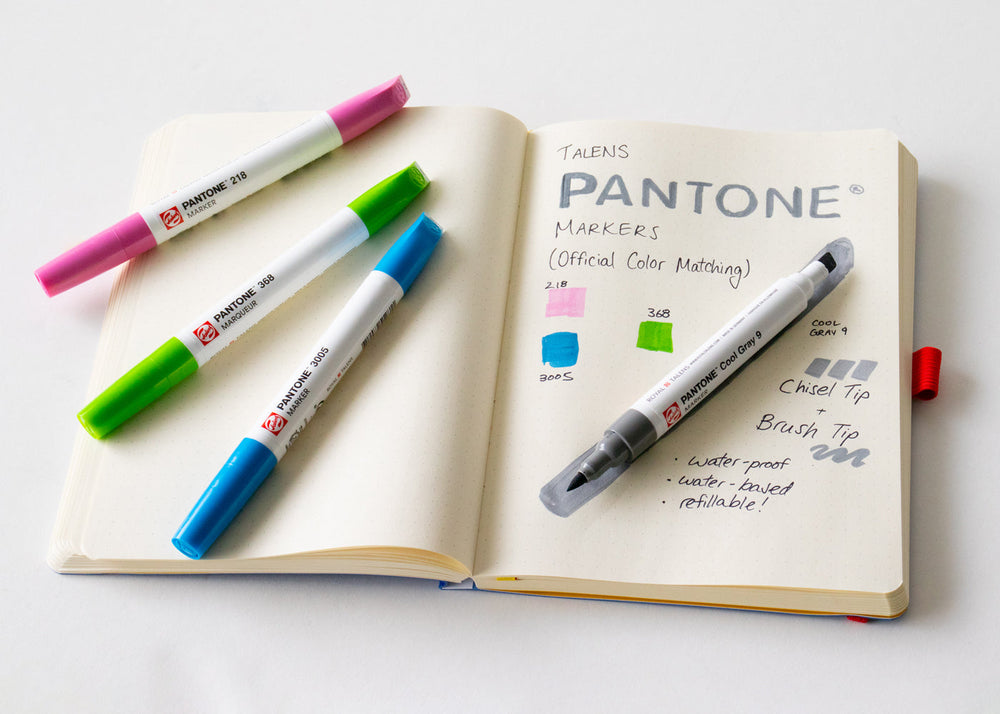 PANTONE® 218
MARKER
PANTONE® 368
MARQUEUR
PANTONE® 3005
MARKER
ROYAL TALENS
TALENS
PANTONE®
MARKERS
(Official Color Matching)
218
368
3005
ROYAL TALENS
PANTONE® Cool Gray 9
MARKER
COOL
GRAY 9
Chisel Tip
+
Brush Tip
· water-proof
· water-based
· refillable!